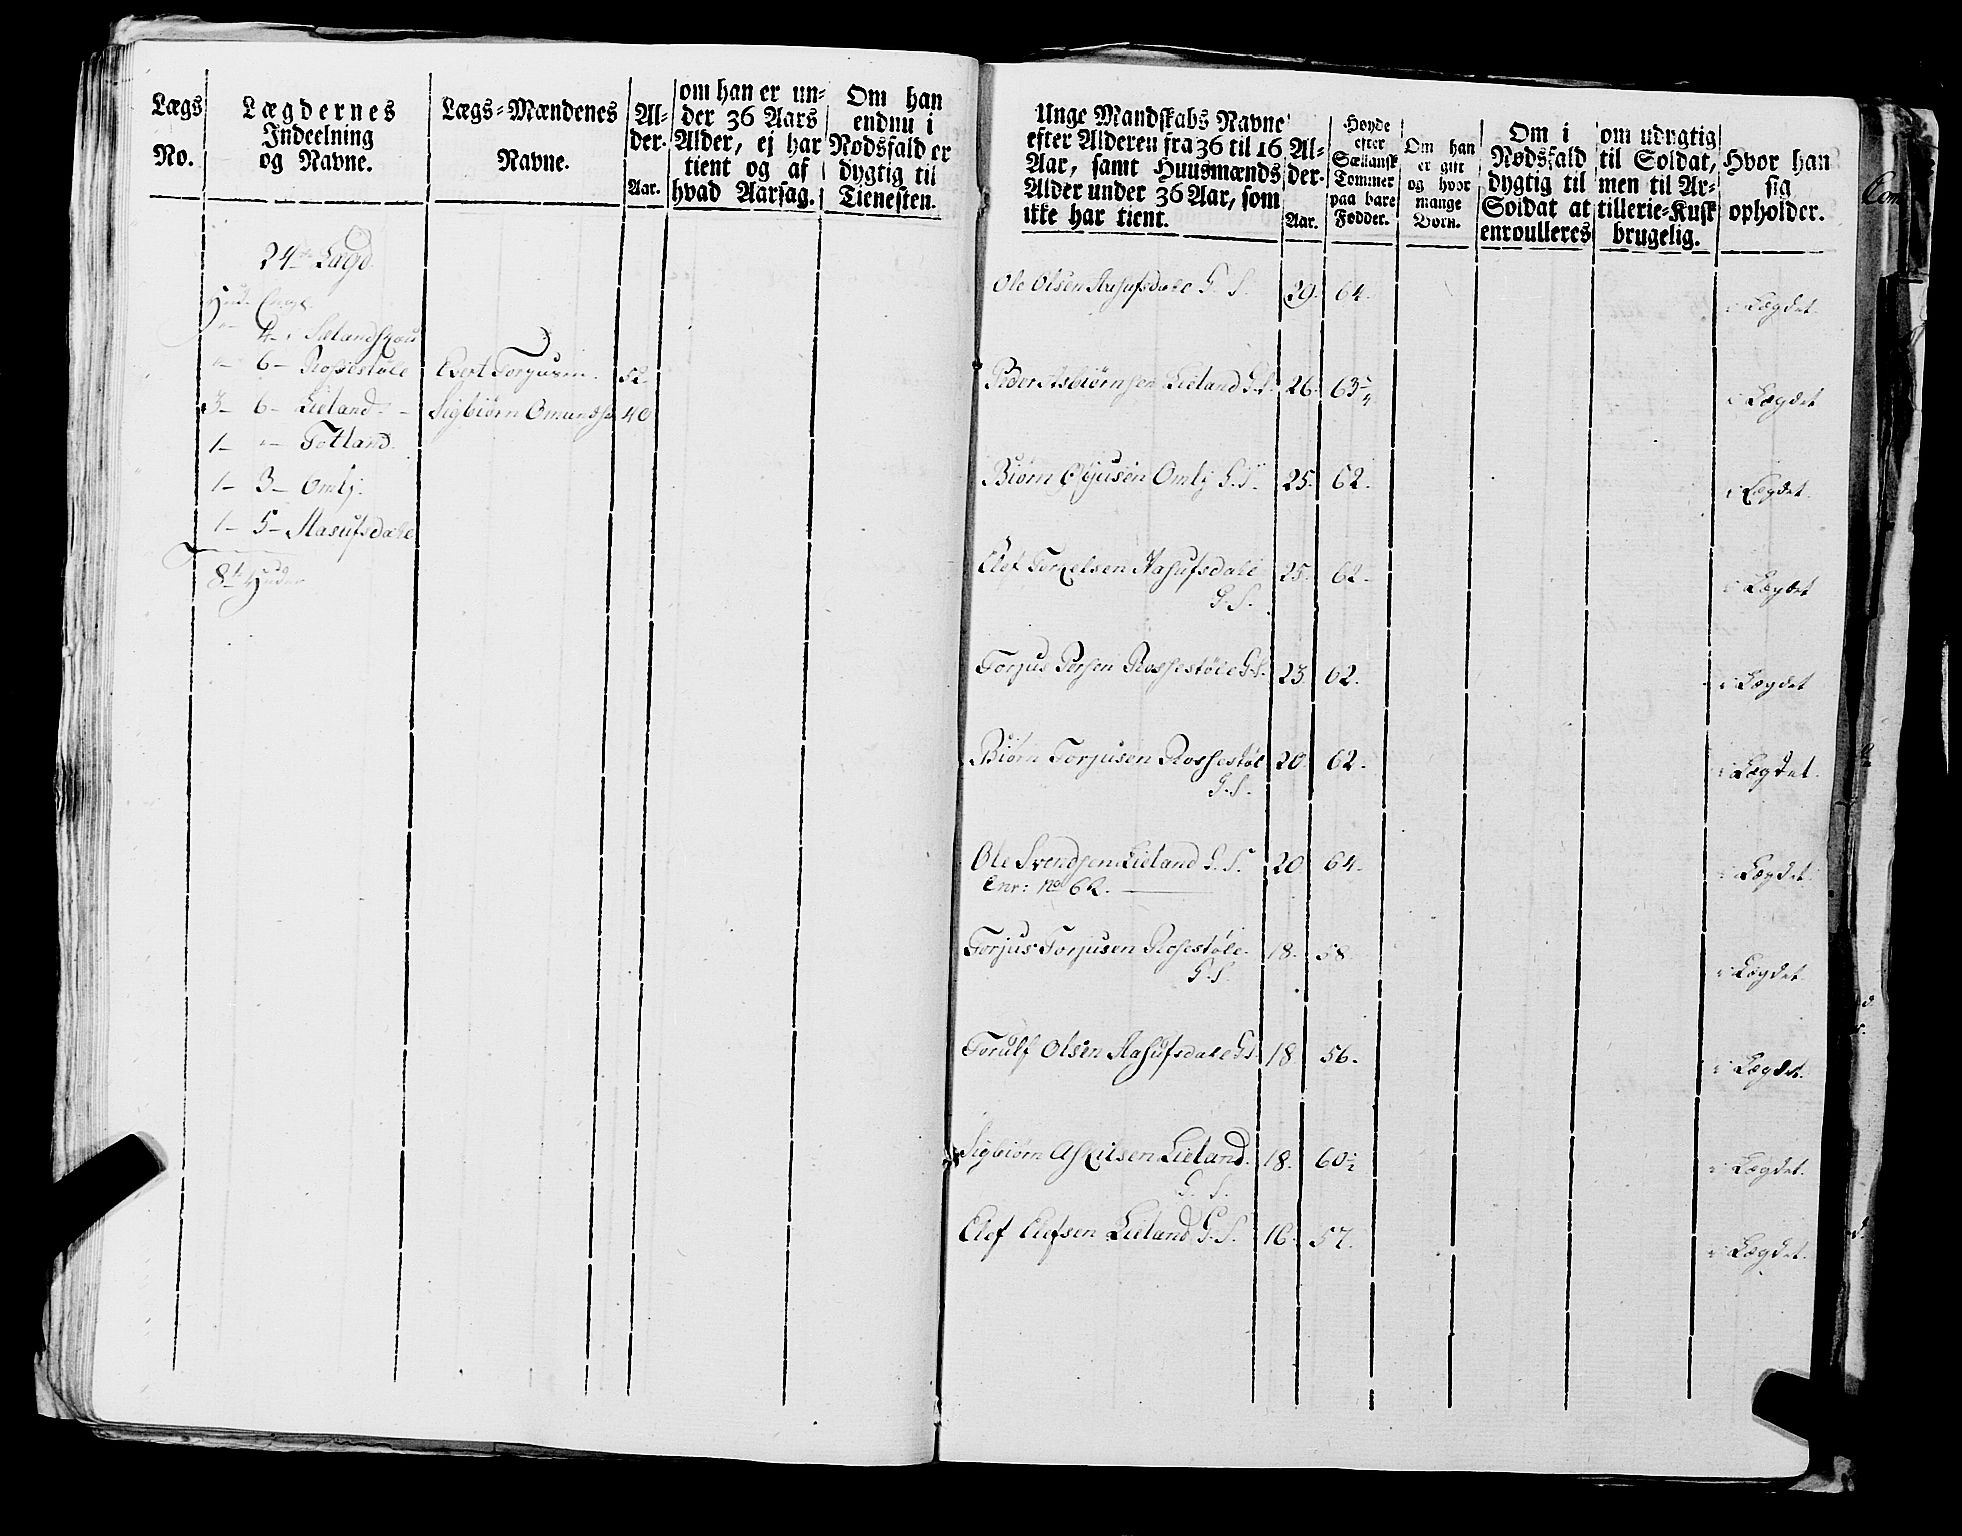 Lægs No.
Lægdernes Indeelning og Navne.
Lægs-Mændenes Navne.
Alder. Aar.
om han er under 36 Aars Alder, ej har tient og af hvad Aarsag.
Om han endnu i Nødsfald er dygtig til Tienesten.
24de Lægd
4 - Sælandskou
6 - Rossestøle Evert Torgusen. 52.
3 - 6 - Lieland - Sigbiørn Omunds 40
1 - Totland.
1 - 3 - Omli.
1 - 5 - Aasufsdale
8 1/2 Huder
Unge Mandskabs Navne efter Alderen fra 36 til 16 Aar, samt Huusmænds Alder under 36 Aar, som ikke har tient.
Alder. Aar.
Høyde efter Siællansk Tommer paa bare Fødder.
Om han er gift og hvor mange Børn.
Om i Nødsfald dygtig til Soldat at enroulleres
om udygtig til Soldat, men til Artillerie-Kusk brugelig.
Hvor han sig opholder.
Ole Olsen Aasufsdale G. S. 29. 64. i Lægdet.
Peder Asbiørnsen Lieland G.S. 26. 63 3/4 i Lægdet
Biørn Omli G.S. 25. 62. i Lægdet.
Elef Torkelsen Aasufsdale 25. 62. i Lægdet
G.S.
Torjus Persen Rossestøle G.S. 23. 62. i Lægdet
Biørn Torjusen Rossestøl 20 62. i Lægdet.
G.S.
Ole Svendsen Lieland G. S. 20 64. i Lægdet.
Enr: No 62.
Torjus Torjusen Rosestøle. 18. 58. i Lægdet.
G.S.
Torulf Olsen Aasufsdale G.S. 18 56. i Lægdet.
Sigbiørn Askilsen Lieland. 18. 60 1/2 i Lægdet.
G. S.
Elef Elefsen Lieland G.S. 16. 57. i Lægdet.